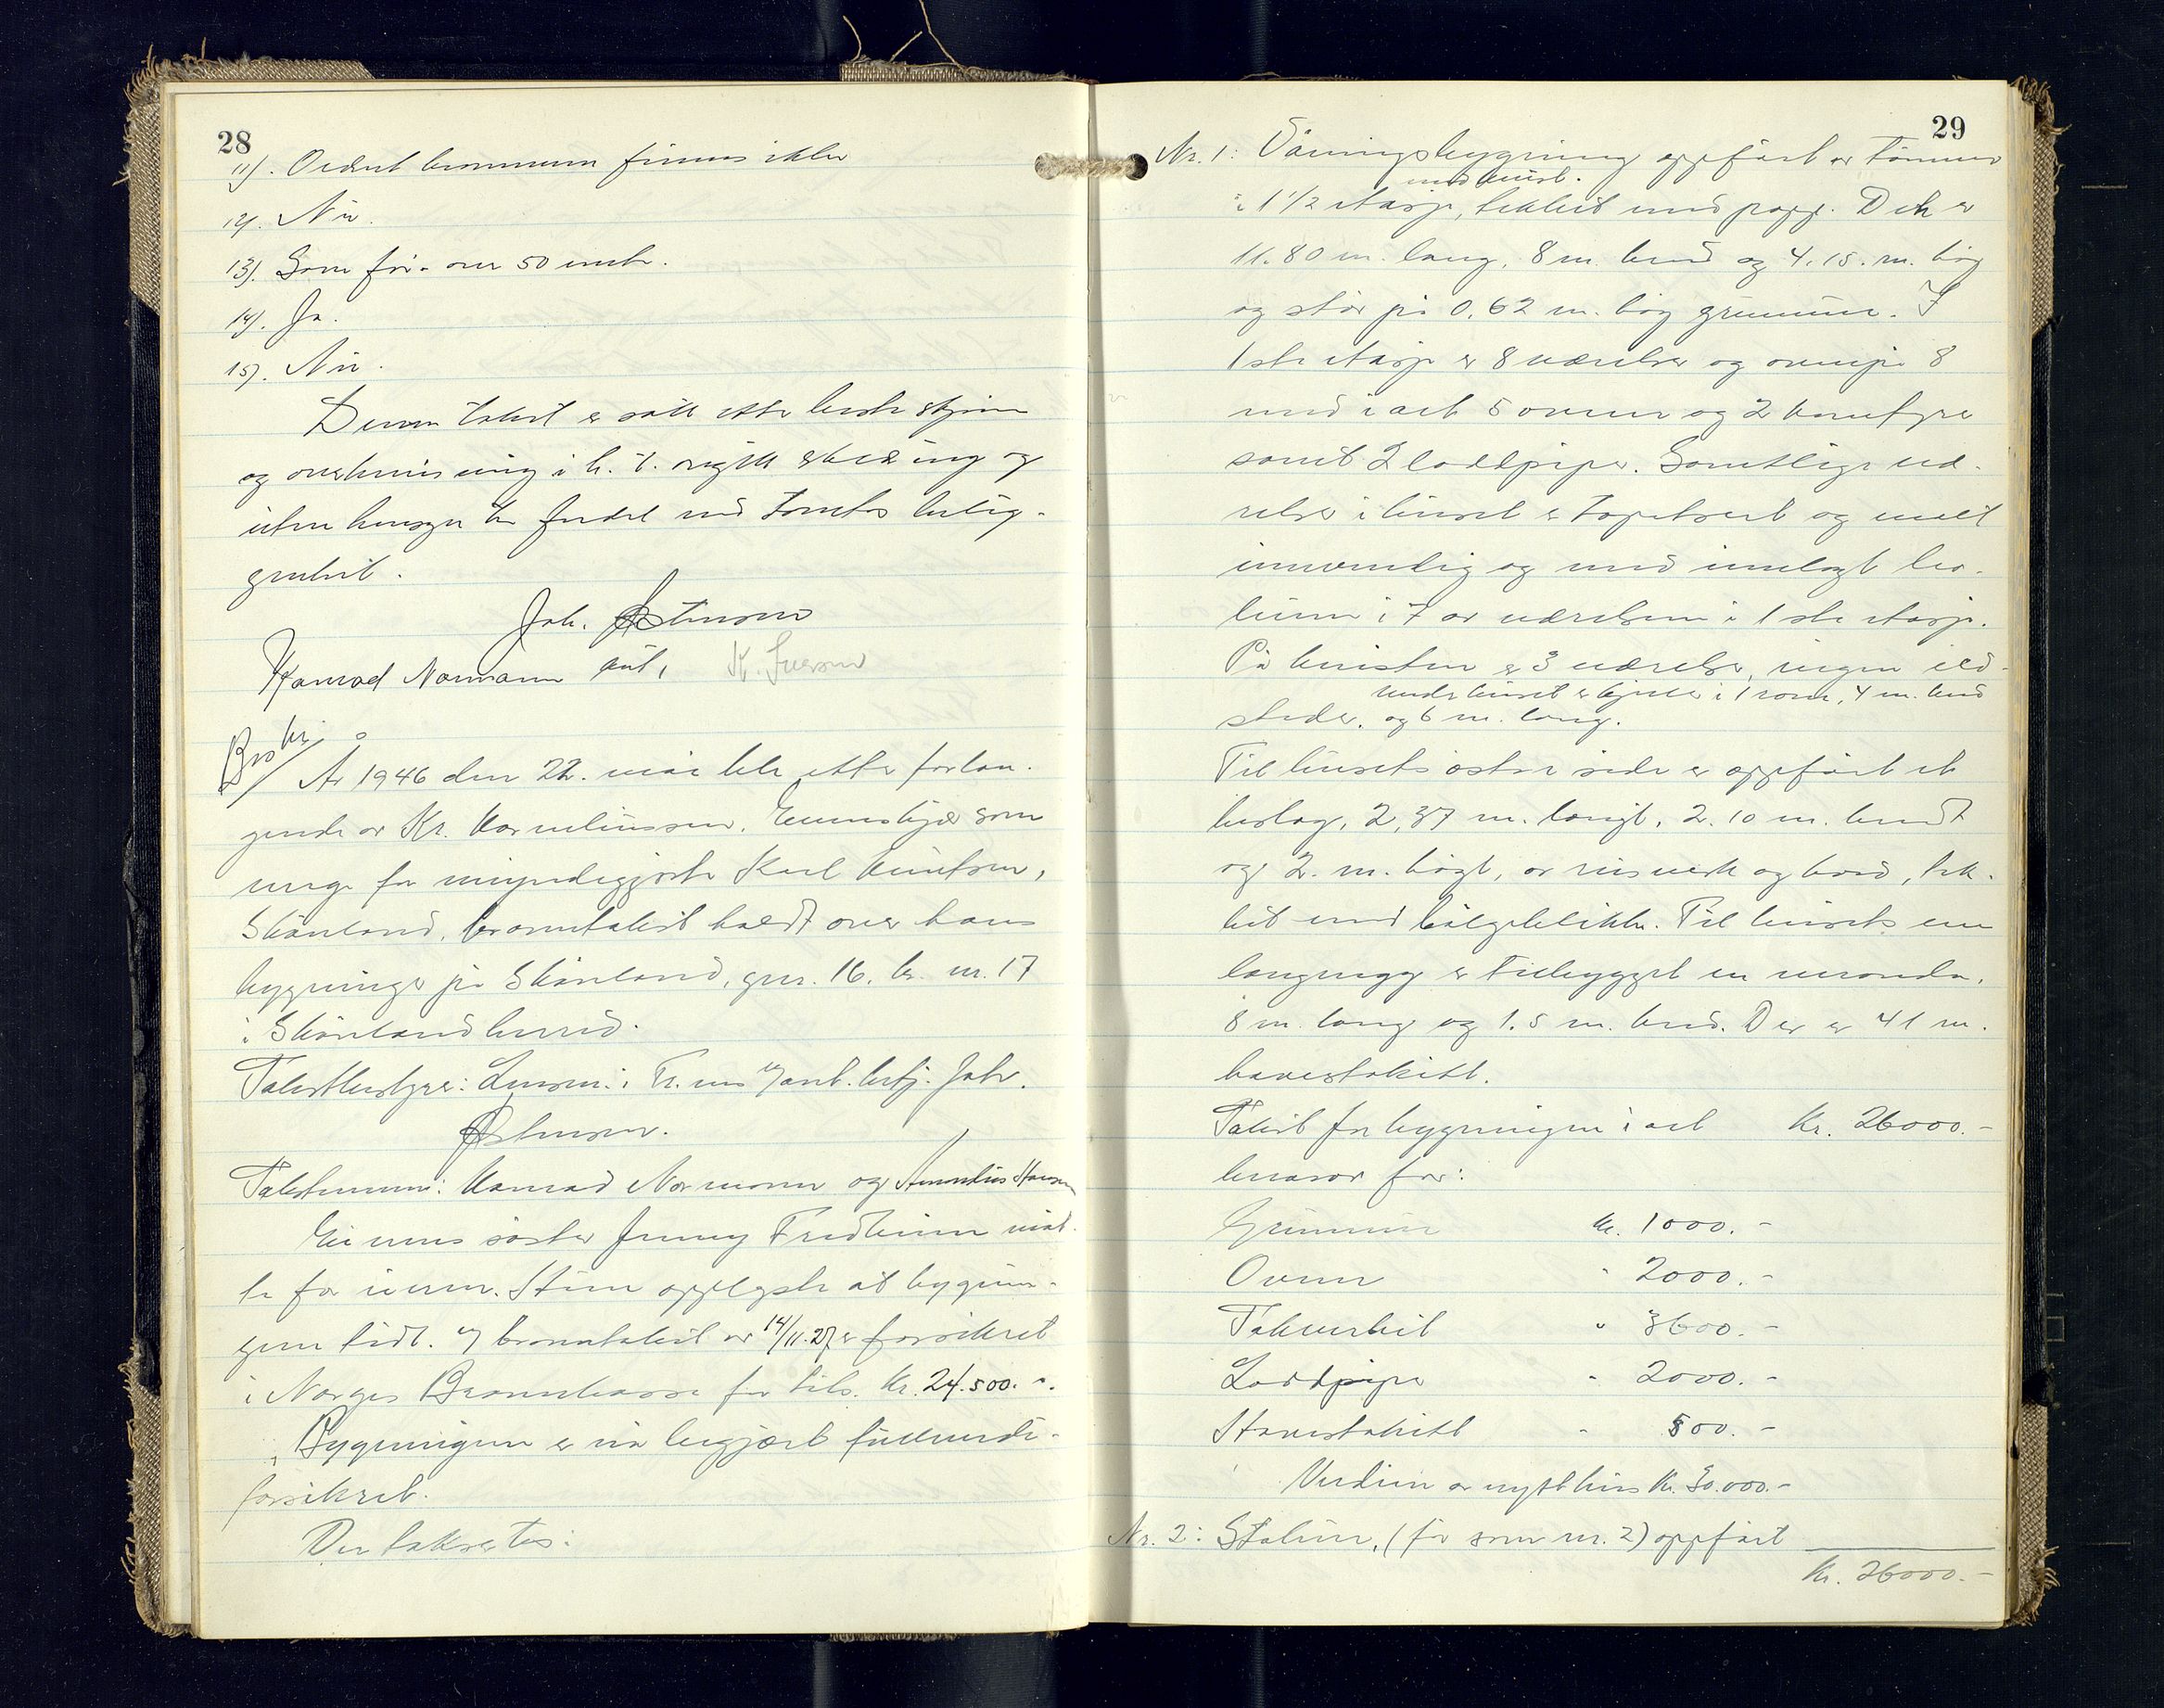 28
11). Ordnet brannvern finnes ikke
12). Nei.
13). Som før - over 50 mtr.
14). Ja.
15). Nei.
Denne takst er satt etter beste skjønn
og overbevisning i h. t. avgitt erklæring og
uten hensyn til fordel ved tomtas belig-
genhet.
Joh. Østensen
Konrad Normann
K. Iversen
Br.
År 1946 den 22. mai ble etter forlan-
gende av Kr. Kornelinssen, Evenskjær som
verge for umyndiggjorte Karl Knutsen,
Skånland, branntakst holdt over hans
bygninger på Skånland, gnr. 16. br. nr. 17
i Skånland herred.
Takstbestyrer: Lensm. i Tr. ms 7 ant. betj. Joh.
Østensen.
Takstmenn: Konrad Normann og Amandus Hansen
Eierens søster Jenny Fredheim møt-
te for ham. Hun opplyste at bygnin-
gene tidl. v/ branntakst av 14/11.27 er forsikret
i Norges Brannkasse for tils. kr. 24.500.-.
Bygningene er nå begjært fullverdi-
forsikret.
Der takseres:
29
Nr. 1: Våningsbygning oppført av tømmer
med kvist.
i 1 1/2 etasje, tekket med papp. Den er
11.80 m. lang, 8 m. bred og 4.15. m. høg
og står på 0,62 m. høg grunnmur. I
1ste etasje er 8 værelser og ovenpå 8
med i alt 5 ovner og 2 komfyrer
samt 2 loddpiper. Samtlige væ-
relser i huset er tapetsert og malt
innvendig og med innlagt lin-
leum i 7 av værelsene i 1ste etasje.
På kvisten er 3 værelser, ingen ild-
under huset er kjeller i 1 rom, 4 m. bred
steder. og 6 m. lang.
Til husets østre side er oppført et
bislag, 2,37 m. langt, 2.10 m. bredt
og 2. m. høgt, av reisverk og bord, tek-
ket med bølgeblikk. Til husets ene
langvegg er tilbygget en veranda,
8 m. lang og 1.5 m. bred. Der er 41 m.
havestakitt.
Takst for bygningen i alt Kr. 26000.-
hvorav for:
Grunnmur kr. 1000.-
Ovner " 2000.-
Takverket " 3600.-
Loddpiper " 2000.-
Havestakitt " 500.-
Verdien av nytt hus Kr. 30.000.-
Nr. 2: Stallen, (før som nr. 2) oppført
Kr. 26000.-